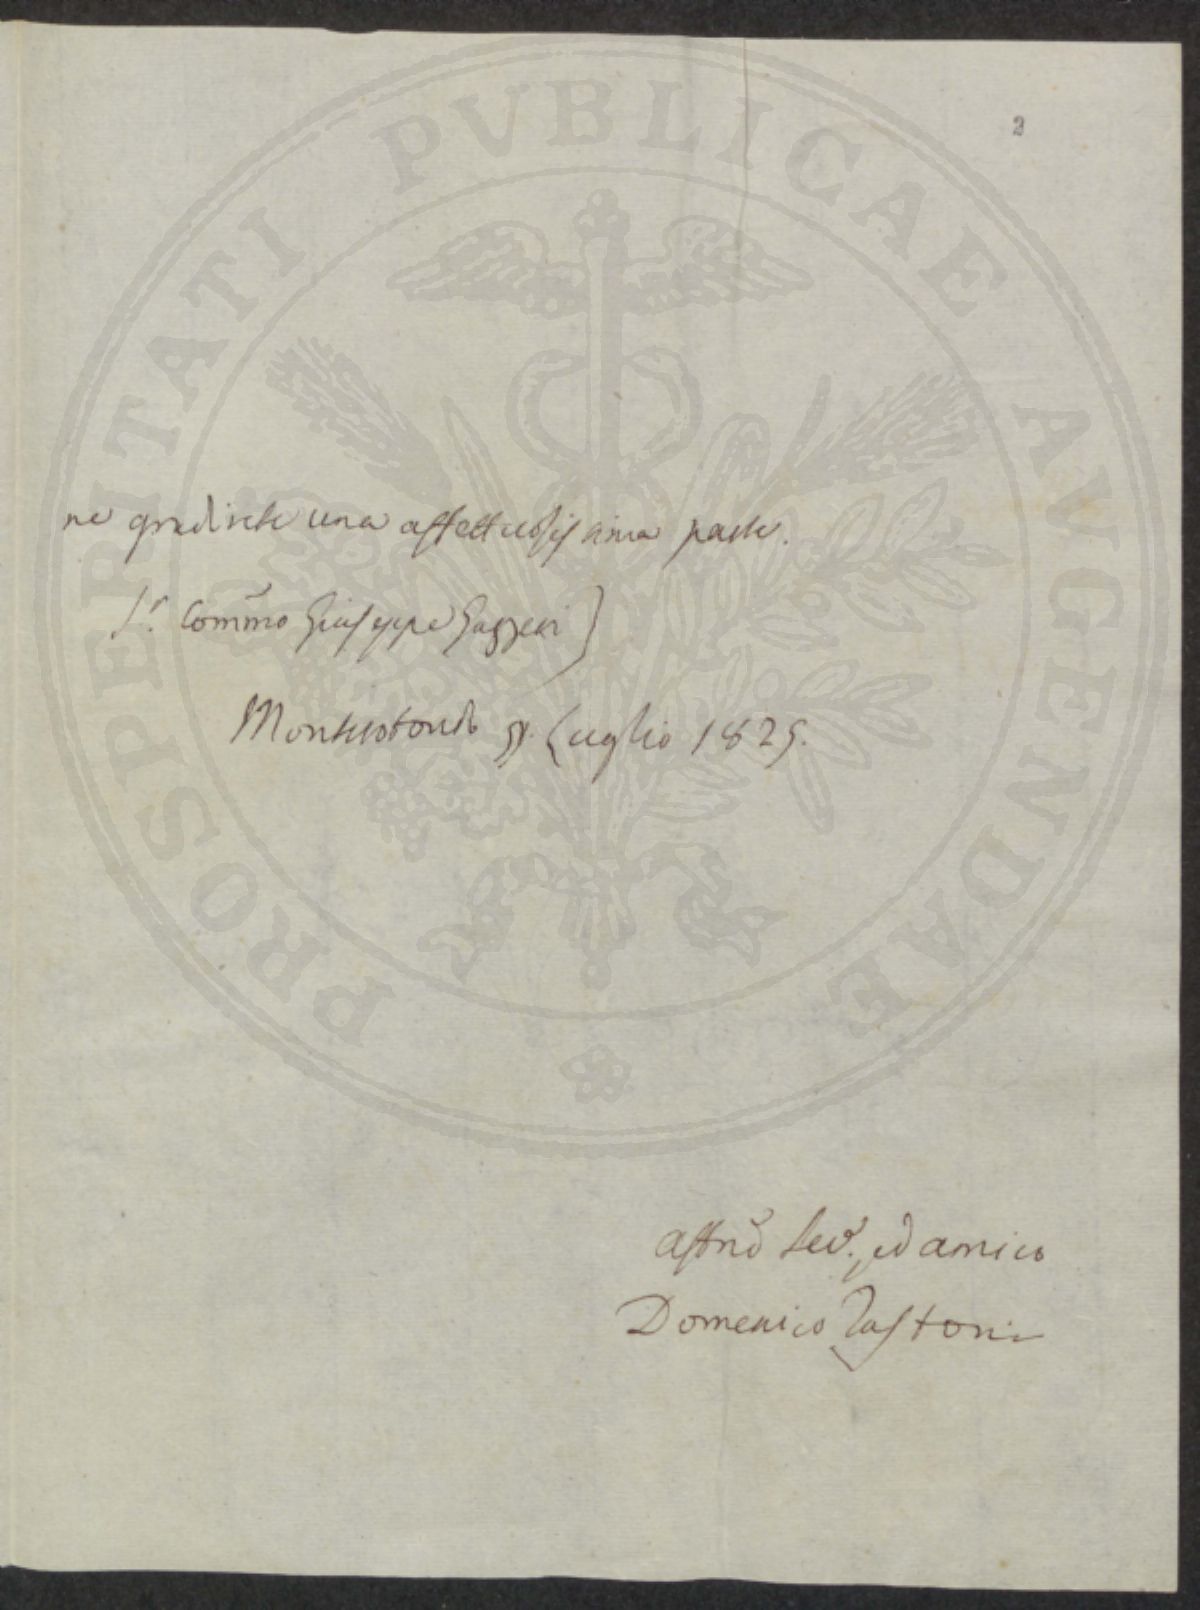 2
PROSPERITATI PVBLICAE AVGENDAE
ne gradirete una affettuosissima parte.
Sr. Commo Giuseppe Gazzeri
Monterotondo Luglio 1825.
affmo Sev. ed amico
Domenico